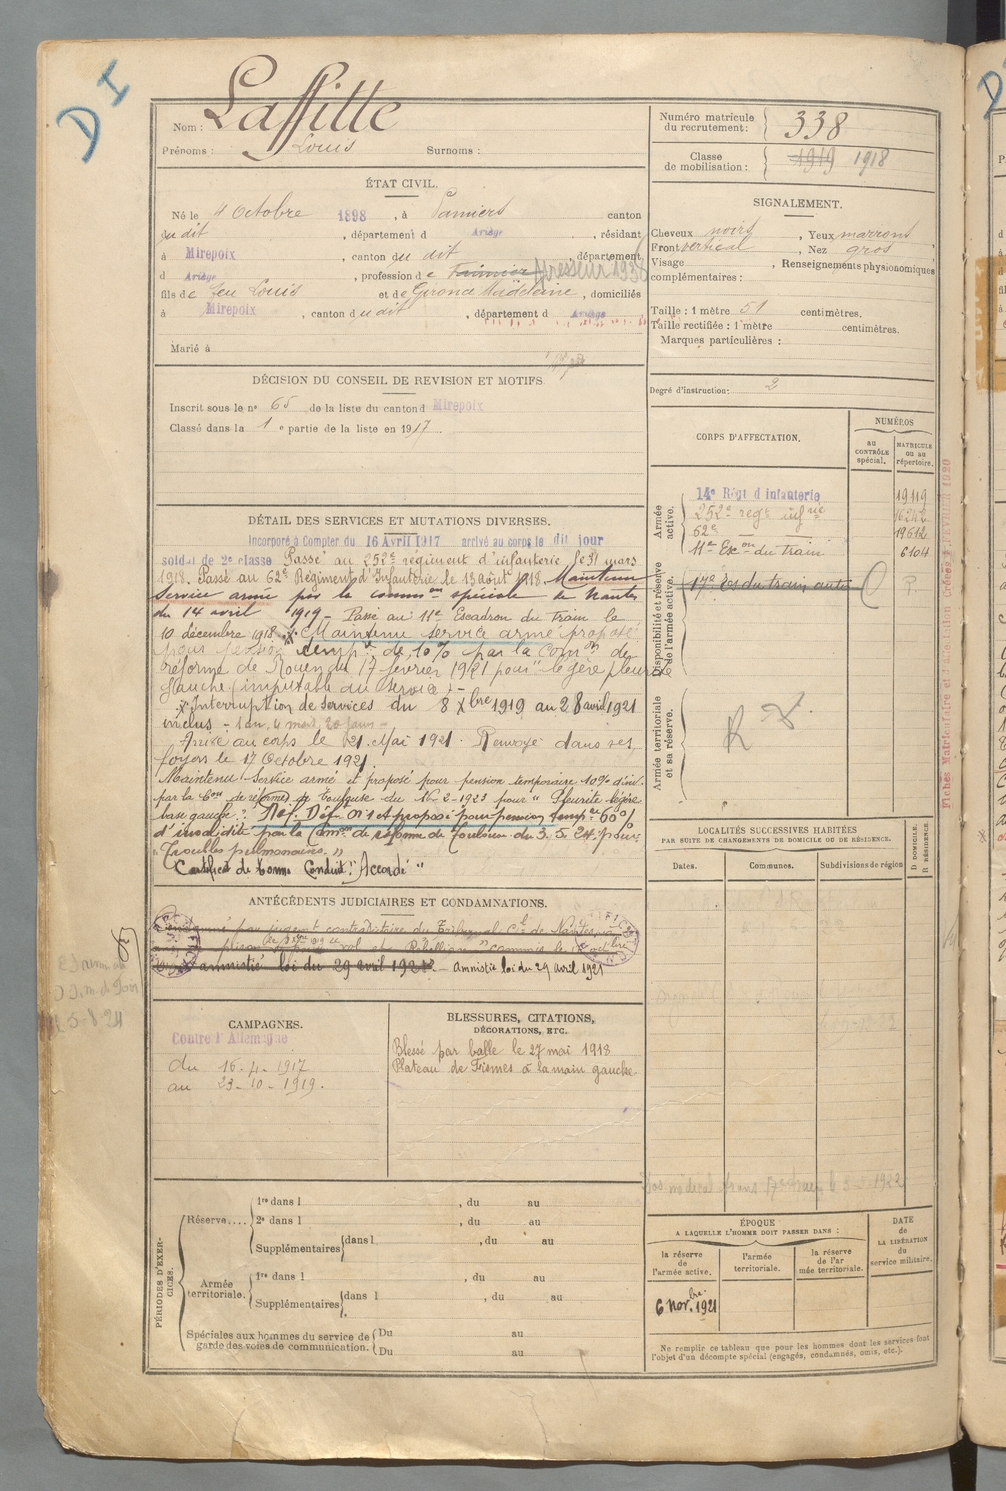 D I
Nom : Laffitte
Prénoms : Louis Surnoms :
Numéro matricule du recrutement : 338
Classe de mobilisation : 1919 1918
ÉTAT CIVIL.
Né le 4 Octobre 1898, à Pamiers canton
du dit, département d Ariège, résidant
à Mirepoix, canton du dit département
d Ariège, profession de Presseur 1938
fils de feu Louis et de Girona Madeleine, domiciliés
à Mirepoix, canton du dit, département d Ariège
Marié à
SIGNALEMENT.
Cheveux noirs, Yeux marrons
Front vertical, Nez gros
Visage , Renseignements physionomiques
complémentaires :
Taille : 1 mètre 51 centimètres.
Taille rectifiée : 1 mètre centimètres.
Marques particulières :
Degré d'instruction : 2
DÉCISION DU CONSEIL DE REVISION ET MOTIFS
Inscrit sous le n° 65 de la liste du canton d Mirepoix
Classé dans la 1e partie de la liste en 1917.
CORPS D'AFFECTATION.
NUMÉROS
au CONTRÔLE spécial.
MATRICULE ou au répertoire.
Armée active.
14e Régt d'infanterie 19119
252e régt infrie 16242
62e — 19612
11e Escon du Train 6104
Disponibilité et réserve de l'armée active.
17e Es du train auto
Armée territoriale et sa réserve.
Fiches Matriculaire et d'Affectation Créées Février 1920
DÉTAIL DES SERVICES ET MUTATIONS DIVERSES.
Incorporé à Compter du 16 Avril 1917 arrivé au corps le dit jour
soldat de 2e classe Passé au 252e régiment d'infanterie le 31 mars
1918. Passé au 62e Régiment d'Infanterie le 13 août 1918. Maintenu
Service armé par la common spéciale de Nantes
du 14 avril 1919 - Passé au 11e Escadron du Train le
10 décembre 1918. Maintenu service armé proposé
pour pension tempre de 10% par la Comon de
réforme de Rouen du 17 février 1921 pour "légère pleurite
gauche (imputable au service) -
Interruption de services du 8 Xbre 1919 au 28 avril 1921
inclus - 1 an, 4 mois, 20 jours -
Arrivé au corps le 21 Mai 1921. Renvoyé dans ses
foyers le 17 Octobre 1921.
Maintenu Service armé et proposé pour pension temporaire 10% d'inv.
par la Con de réforme de Toulouse du 16-2-1923 pour "Pleurite légère
base gauche". Réf. Déf. N°1 et proposé pour pension temp.re 60%
d'invalidité par la Comon de réforme de Toulouse du 3.5.24 pour
"Troubles pulmonaires."
Certificat de bonne Conduite "Accordé"
LOCALITÉS SUCCESSIVES HABITÉES
PAR SUITE DE CHANGEMENTS DE DOMICILE OU DE RÉSIDENCE.
Dates. Communes. Subdivisions de région
D DOMICILE.
R RÉSIDENCE.
ANTÉCÉDENTS JUDICIAIRES ET CONDAMNATIONS.
amnistié loi du 29 avril 1921 - Amnistié loi du 29 avril 1921
CAMPAGNES.
Contre l'Allemagne
du 16-4-1917
au 23-10-1919.
BLESSURES, CITATIONS,
DÉCORATIONS, ETC.
Blessé par balle le 27 mai 1918
Plateau de Fismes à la main gauche
PÉRIODES D'EXERCICES.
Réserve.... 1re dans l , du au
2e dans l , du au
Supplémentaires dans l , du au
Armée territoriale. 1re dans l , du au
Supplémentaires dans l , du au
Spéciales aux hommes du service de
garde des voies de communication. Du au
Du au
ÉPOQUE
A LAQUELLE L'HOMME DOIT PASSER DANS :
la réserve de l'armée active.
l'armée territoriale.
la réserve de l'ar mée territoriale.
DATE de LA LIBÉRATION du service militaire.
6 nov.bre 1921
Ne remplir ce tableau que pour les hommes dont les services font
l'objet d'un décompte spécial (engagés, condamnés, omis, etc.).